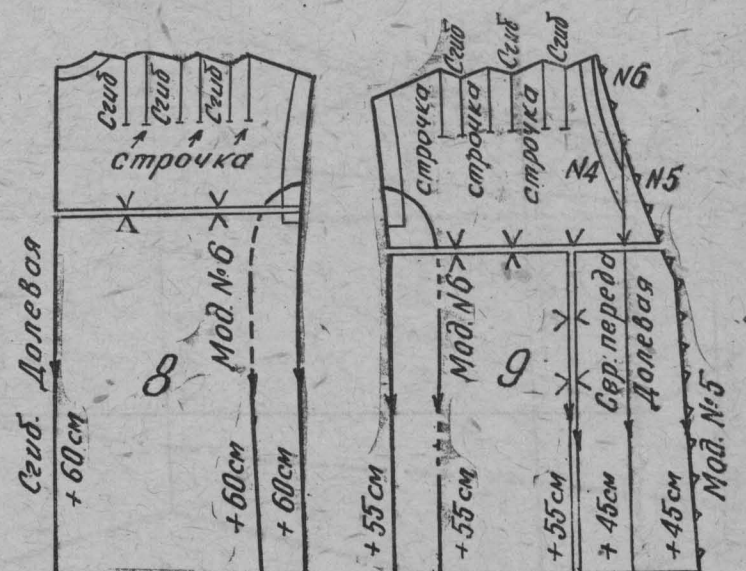 Сгиб
Сгиб
Сгиб
строчка
Сгиб. Долевая
Мод. №6
8
+60см
+60см
+60см
Сгиб
Сгиб
Сгиб
строчка
строчка
строчка
№6
№4
№5
Мод. №6
9
Сер. переда
Долевая
Мод. №5
+55см
+55см
+55см
+45см
+45см